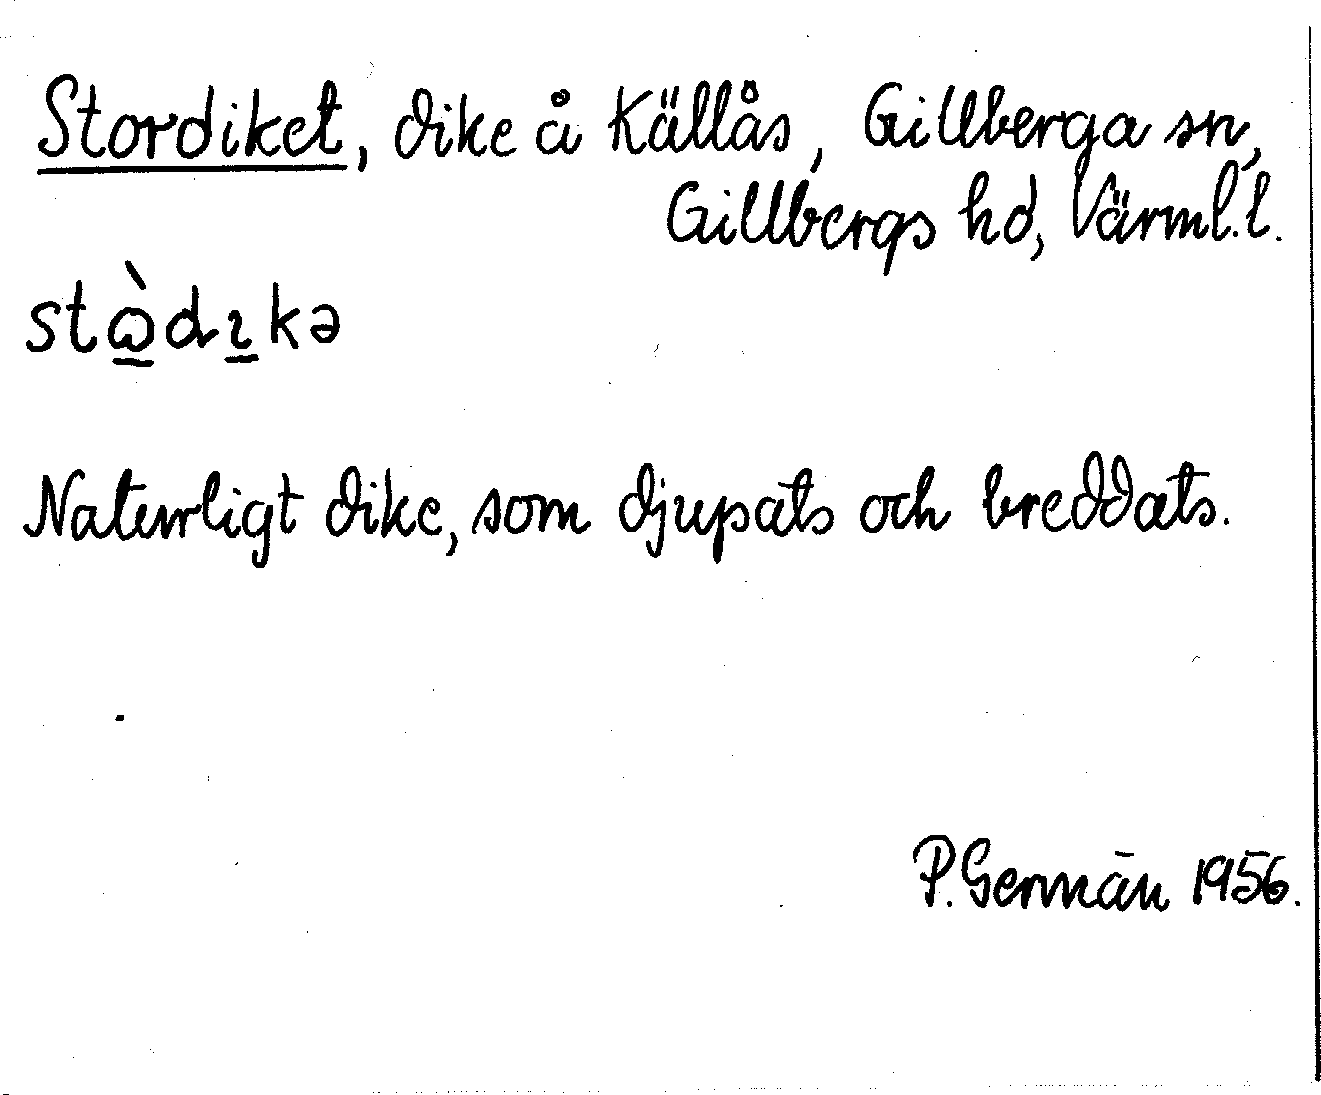 Stordiket, dike å Källås, Gillberga sn,
Gillbergs hd, Värml.l.
stὼ̱dɿ̱kə
Naturligt dike, som djupats och breddats.
P. Germān 1956.